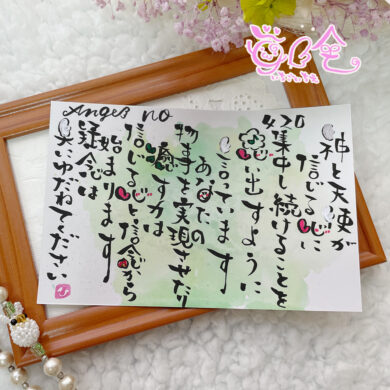 Angel no
420
神と天使が
信じる心に
集中し続けることを
思い出すように
言っています
あなたの
物事を実現させたり
癒す力は
信じる心と信念から
始まります
疑念は
天にゆだねてください